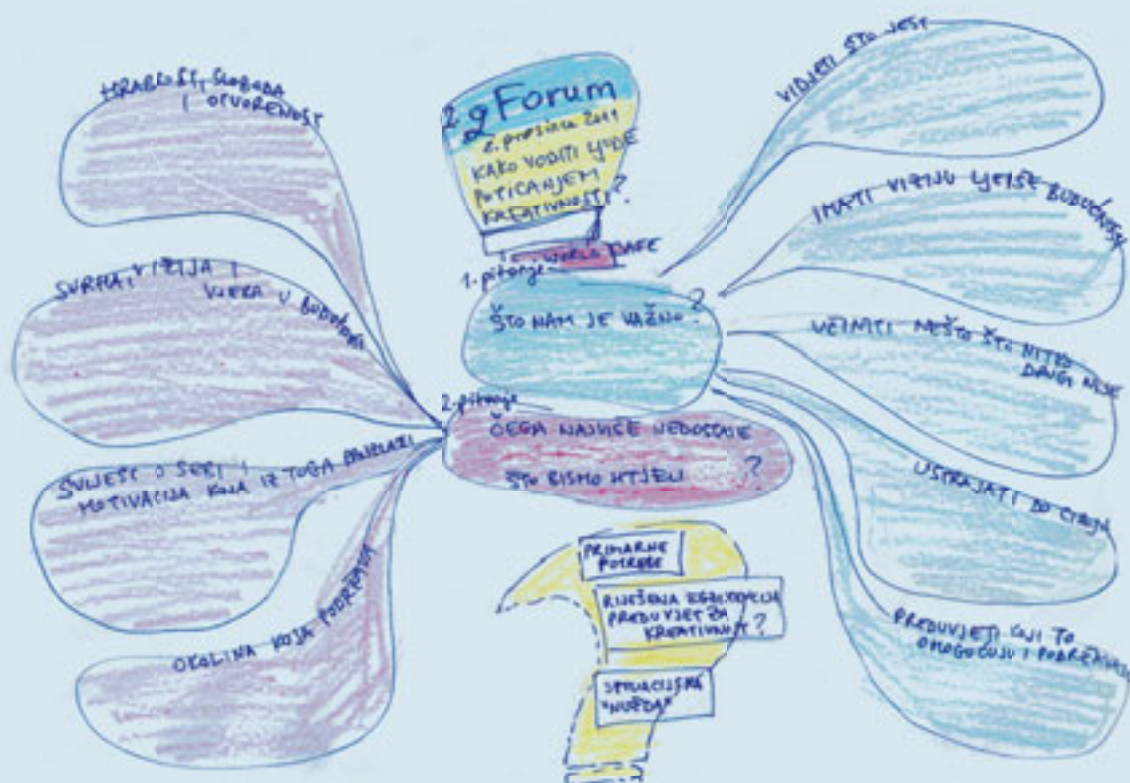 2. g Forum
2. prosinca 2011
KAKO VODITI LJUDE
POTICANJEM
KREATIVNOSTI?
WORLD CAFE
1. pitanje
ŠTO NAM JE VAŽNO?
2. pitanje
ČEGA NAJVIŠE NEDOSTAJE
ŠTO BISMO HTJELI ?
HRABROST, SLOBODA
I OTVORENOST
SVRHA, VIZIJA I
VJERA U BUDUĆNOST
SVIJEST O SEBI I
MOTIVACIJA KOJA IZ TOGA PROIZLAZI
OKOLINA KOJA PODRŽAVA
VIDJETI ŠTO JEST
IMATI VIZIJU LJEPŠE BUDUĆNOSTI
UČINITI NEŠTO ŠTO NITKO
DRUGI NIJE
USTRAJATI DO CILJA
PREDUVJETI KOJI TO
OMOGUĆUJU I PODRŽAVAJU
PRIMARNE
POTREBE
RIJEŠENA EGZISTENCIJA
PREDUVJET ZA
KREATIVNOST?
SITUACIJSKA
"NUŽDA"